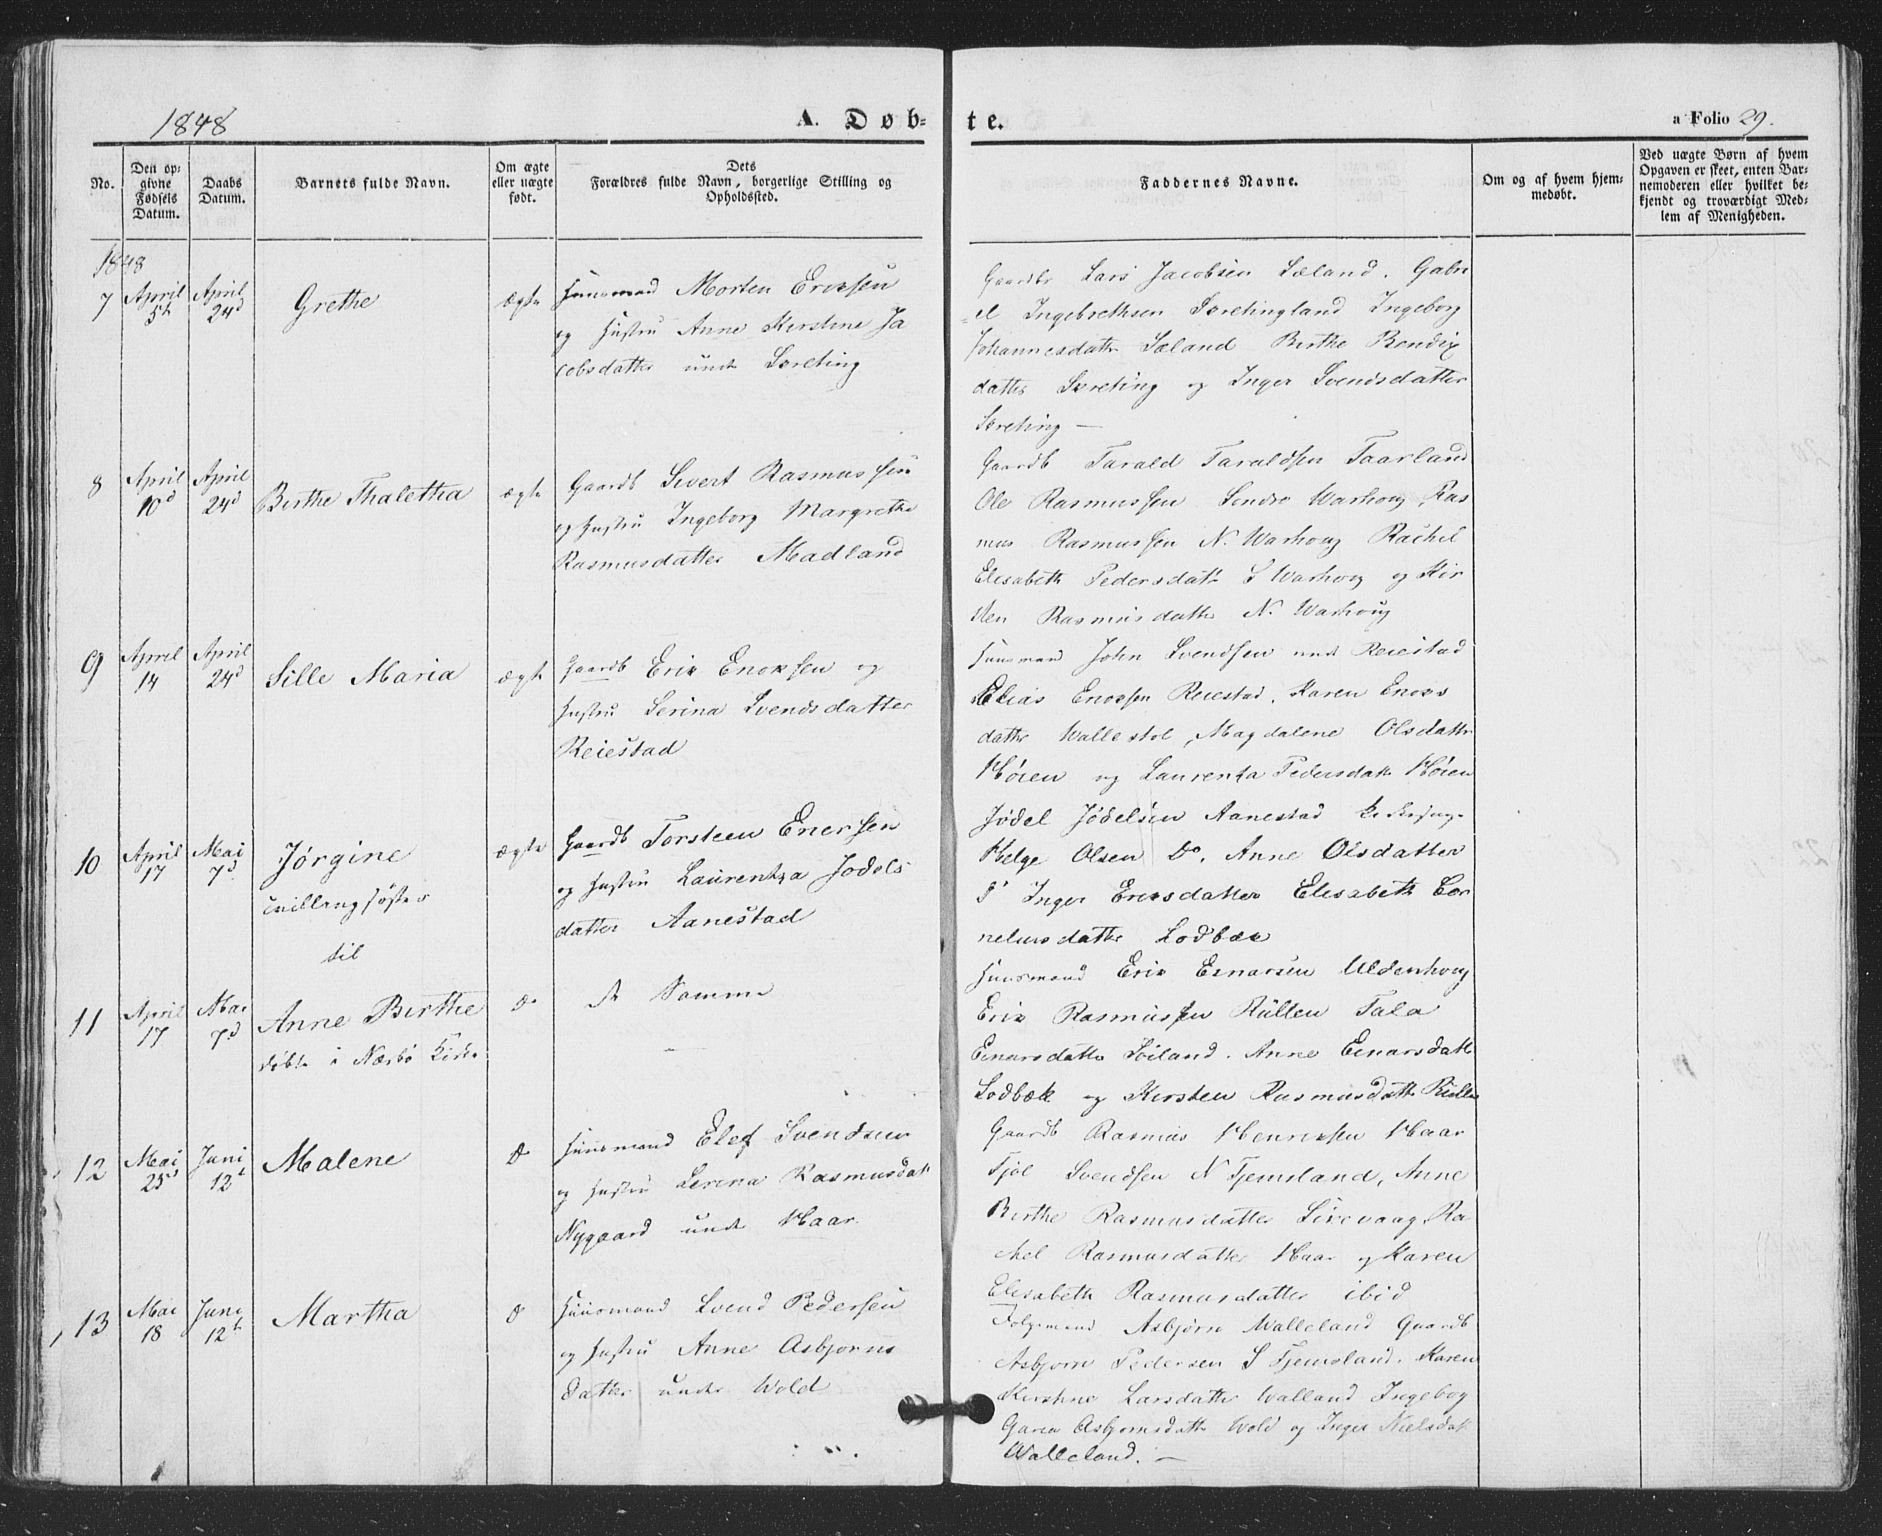 1848
A. Døb-
te.
a Folio 29.
No.
Den op-
givne
Fødsels
Datum.
Daabs
Datum.
Barnets fulde Navn.
Om ægte
eller uægte
født.
Dets
Forældres fulde Navn, borgerlige Stilling og
Opholdssted.
Faddernes Navne.
Om og af hvem hjem-
medøbt.
Ved uægte Børn af hvem
Opgaven er skeet, enten Bar-
nemoderen eller hvilket be-
kjendt og troværdigt Med-
lem af Menigheden.
1848
7
April
5t
April
24d
Grethe
ægte
Huusmand Morten Eriksen
og Hustru Anne Kirstine Ja
cobsdatter unde Særeting
Gaardbr Lars Jacobsen Sæland. Gabri
el Ingebrethsen Særetingland Ingeborg
Johannesdattr Sæland Berthe Bendix
datter Særeting og Inger Svendsdatter
Særeting —
8
April
10d
April
24d
Berthe Thaletha
ægte
Gaardb Sivert Rasmussen
og Hustru Ingeborg Margrethe
Rasmusdatter Madland
Gaardb Tarald Taraldsen Taarland
Ole Rasmussen Søndre Warhoug, Ras
mus Rasmussen N. Warhoug Rachel
Elisabeth Pedersdatr S Warhoug og Kir
sten Rasmusdatter N. Warhoug
9
April
14
April
24d
Sille Maria
ægte
Gaardb Erik Enoksen og
Hustru Serina Svendsdatter
Reiestad
Huusmand John Svendsen unde Reiestad
Elias Enoksen Reiestad. Karen Enoks
datter Wallestol, Magdalene Olsdattr
Høien og Laurentza Pedersdatr Høien
10
April
17
Mai
7d
Jørgine
tvillingsøster
til
ægte
Gaardb Torsteen Enersen
og Hustru Laurentza Jodels
datter Aanestad
Jødel Jødelsen Aanestad
Helge Olsen Do. Anne Olsdatter
Do Inger Eriksdatter Elisabeth Cor
neliusdatter Lodbæk
11
April
17
Mai
7d
Anne Berthe
døbte i Nærbø Kirke
Do
de Samme
—
Huusmand Erik Einarsen Uldenhoug
Erik Rasmussen Hülten Tala
Einarsdatter Søiland. Anne Einarsdatt
Lodbæk og Kirsten Rasmusdatter
12
Mai
25d
Juni
12t
Malene
Do
Huusmand Elef Svendsen
og Hustru Serina Rasmusdatr
Nygaard unde Haar
Gaardb Rasmus Henriksen Haar
Fjøl Svendsen N Tjemsland, Anne
Berthe Rasmusdatter Sirevaag, Ra
chel Rasmusdatter Haar og Karen
Elisabeth Rasmusdatter ibid
13
Mai
18
Juni
12t
Martha
Do
Huusmand Svend Pedersen
og Hustru Anne Asbjørns
datter under Wold
Folgemand Asbjørn Walleland Gaardb
Asbjørn Pedersen S Tjemsland. Karen
Kirstine Larsdattr Walland Ingeborg
Asbjørnsdattr Wold og Inger Nielsdatr
Walleland. —